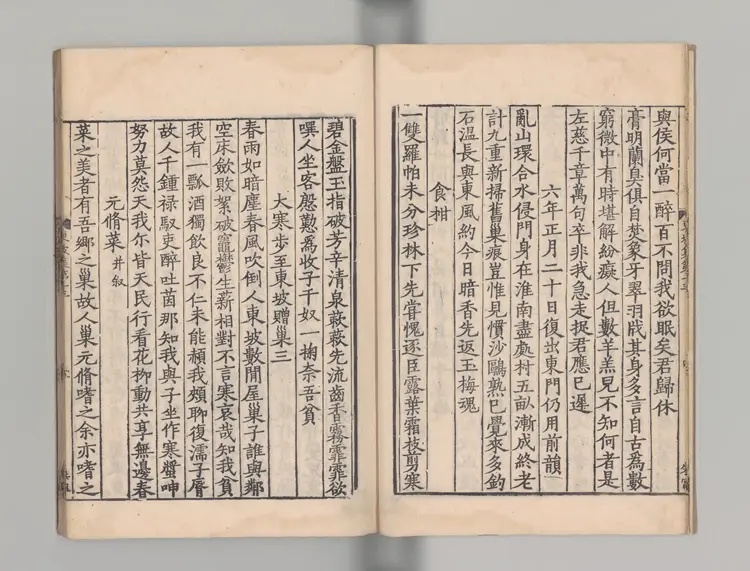 與侯何當一醉百不問我欲眠矣君歸休
膏明蘭臭俱自焚象牙翠羽戕其身多言自古爲數
窮微中有時堪解紛癡人但數羊羔兒不知何者是
左慈千章萬句卒非我急走捉君應已遲
六年正月二十日復出東門仍用前韻
亂山環合水侵門身在淮南盡處村五畝漸成終老
計九重新掃舊巢痕豈惟見慣沙鷗熟已覺來多釣
石溫長與東風約今日暗香先返玉梅魂
食柑
一雙羅帕未分珍林下先嘗愧逐臣露葉霜枝剪寒
碧金盤玉指破芳辛清泉蔌蔌先流齒香霧霏霏欲
噀人坐客慇懃爲收子千奴一掬奈吾貧
大寒步至東坡贈巢三
春雨如暗塵春風吹倒人東坡數間屋巢子誰與鄰
空床斂敗絮破竈鬱生薪相對不言寒哀哉知我貧
我有一瓢酒獨飲良不仁未能赬我頰聊復濡子脣
故人千鍾祿馭吏醉吐茵那知我與子坐作寒螿呻
努力莫怨天我尔皆天民行看花柳動共享無邊春
元脩菜 并叙
菜之美者有吾鄉之巢故人巢元脩嗜之余亦嗜之